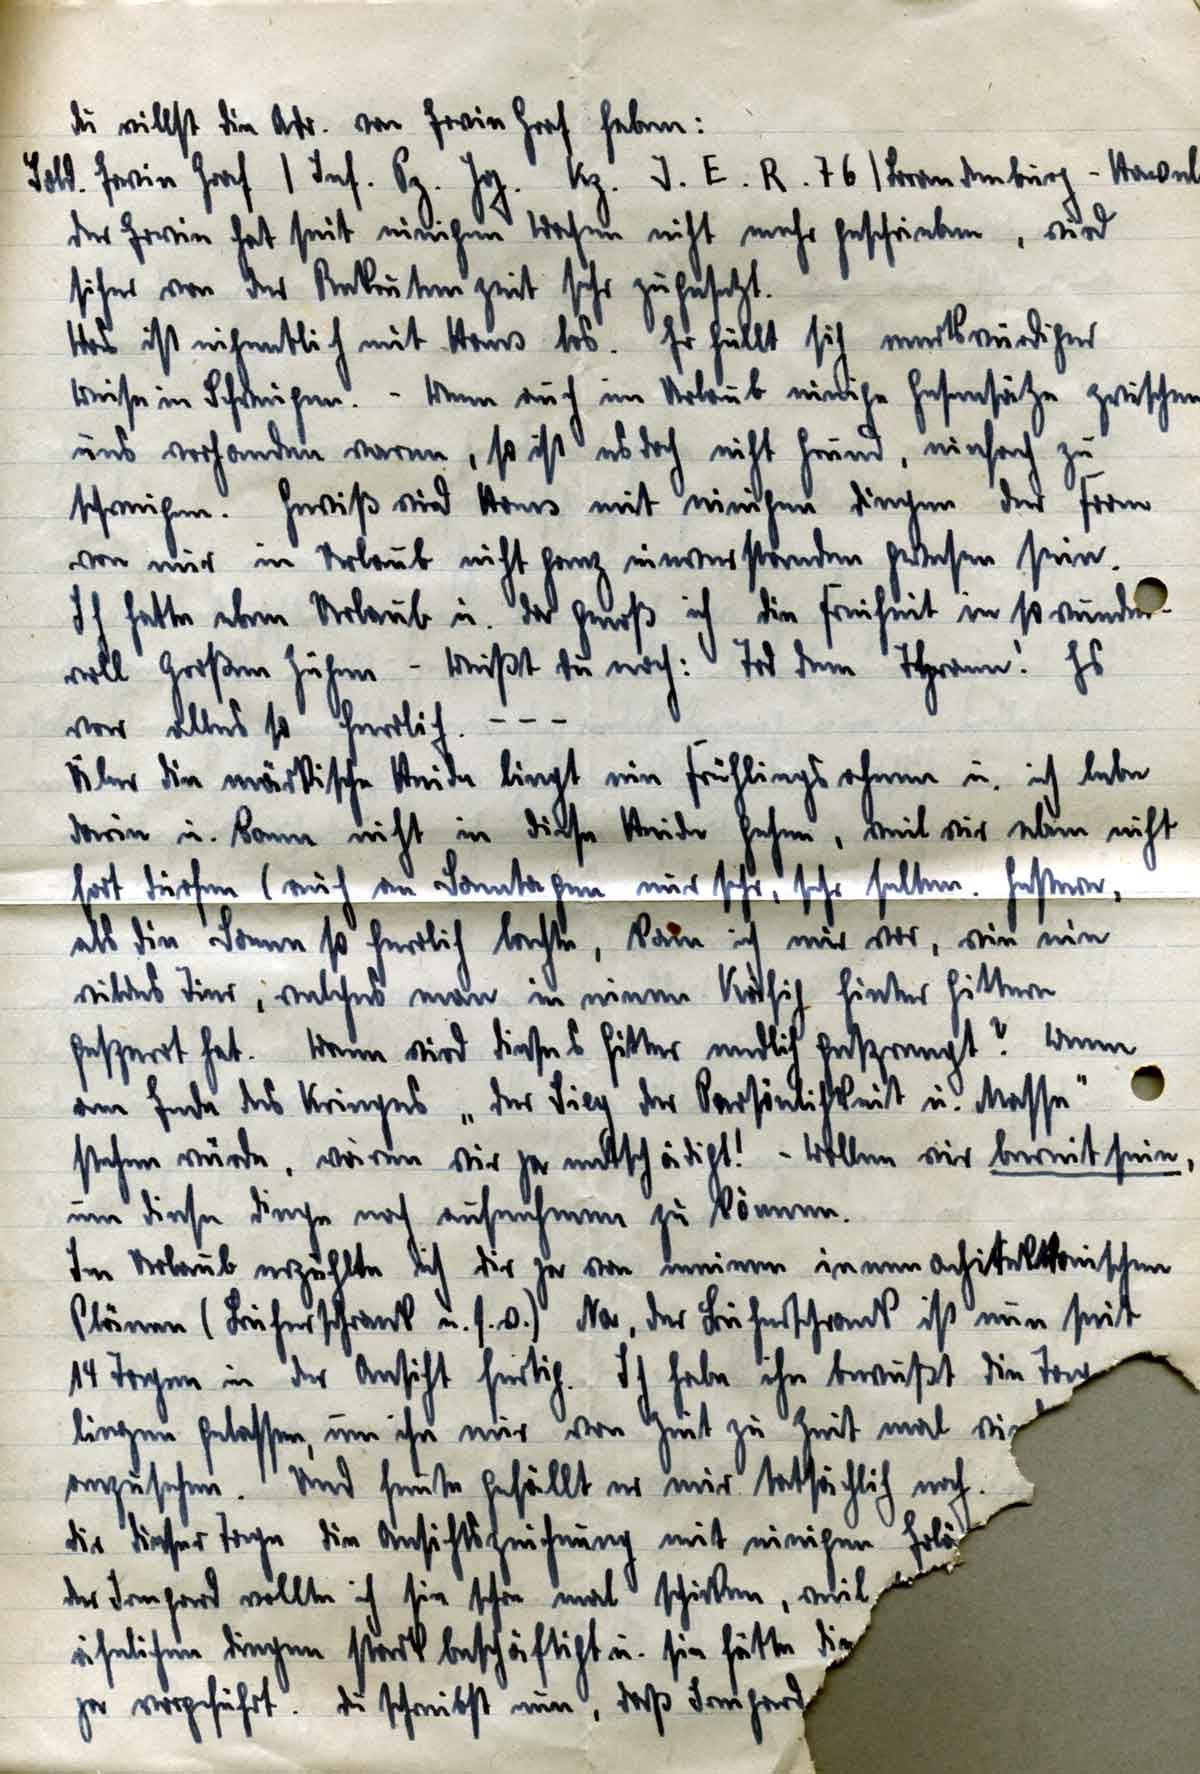 Du willst die Adr. von Erwin Graf haben:
Sold. Erwin Graf / Inf. Pz. Jg. Kp. J. E. R. 76 / Brandenburg - Havel
Der Erwin hat seit einigen Wochen nicht mehr geschrieben, wird
sicher von der Rekrutenzeit sehr zugesetzt.
Was ist eigentlich mit Hans los. Er hüllt sich merkwürdiger
Weise in Schweigen. - Wenn auch im Urlaub einige Gegensätze zwischen
uns vorhanden waren, so ist es doch nicht Grund, einfach zu
schweigen. Gewiß wird Hans mit einigen Dingen der Form
von mir in Urlaub nicht ganz einverstanden gewesen sein.
Ich hatte eben Urlaub u. da genoß ich die Freiheit in so wunder-
voll großen Zügen - Weißt Du noch: Tod dem Tyrann! Es
war alles so herrlich. - - -
Über die märkische Heide liegt ein Frühlingsahnen u. ich lebe
darin u. kann nicht in diese Heide gehen, weil wir eben nicht
fort dürfen (auch an Sonntagen nur sehr, sehr selten. Gestern,
als die Sonne so herrlich lachte, kam ich mir vor, wie ein
wildes Tier, welches man in einen Käfig hinter Gittern
gesperrt hat. Wann wird dieses Gitter endlich gesprengt? Wenn
am Ende des Krieges „der Sieg der Persönlichkeit u. Masse"
stehen würde, wären wir ja entschädigt! - Wollen wir bereit sein,
um diese Dinge noch aufnehmen zu können.
Im Urlaub erzählte ich dir ja von meinen innenachitektonischen
Plänen (Bücherschrank u.s.w.) Na, der Bücherschrank ist nun seit
14 Tagen in der Ansicht fertig. Ich habe ihn bewußt die
liegen gelassen, um ihn mir von Zeit zu Zeit mal
anzusehen. Und heute gefällt er mir tatsächlich noch.
dir dieser Tage die Ansichtszeichnung mit einigen
der Irmgard wollte ich sie schon mal schicken, weil
ähnlichen Dingen stark beschäftigt u. sie hätte die
ja vorgeführt. Du schreibst nun, daß Irmgard